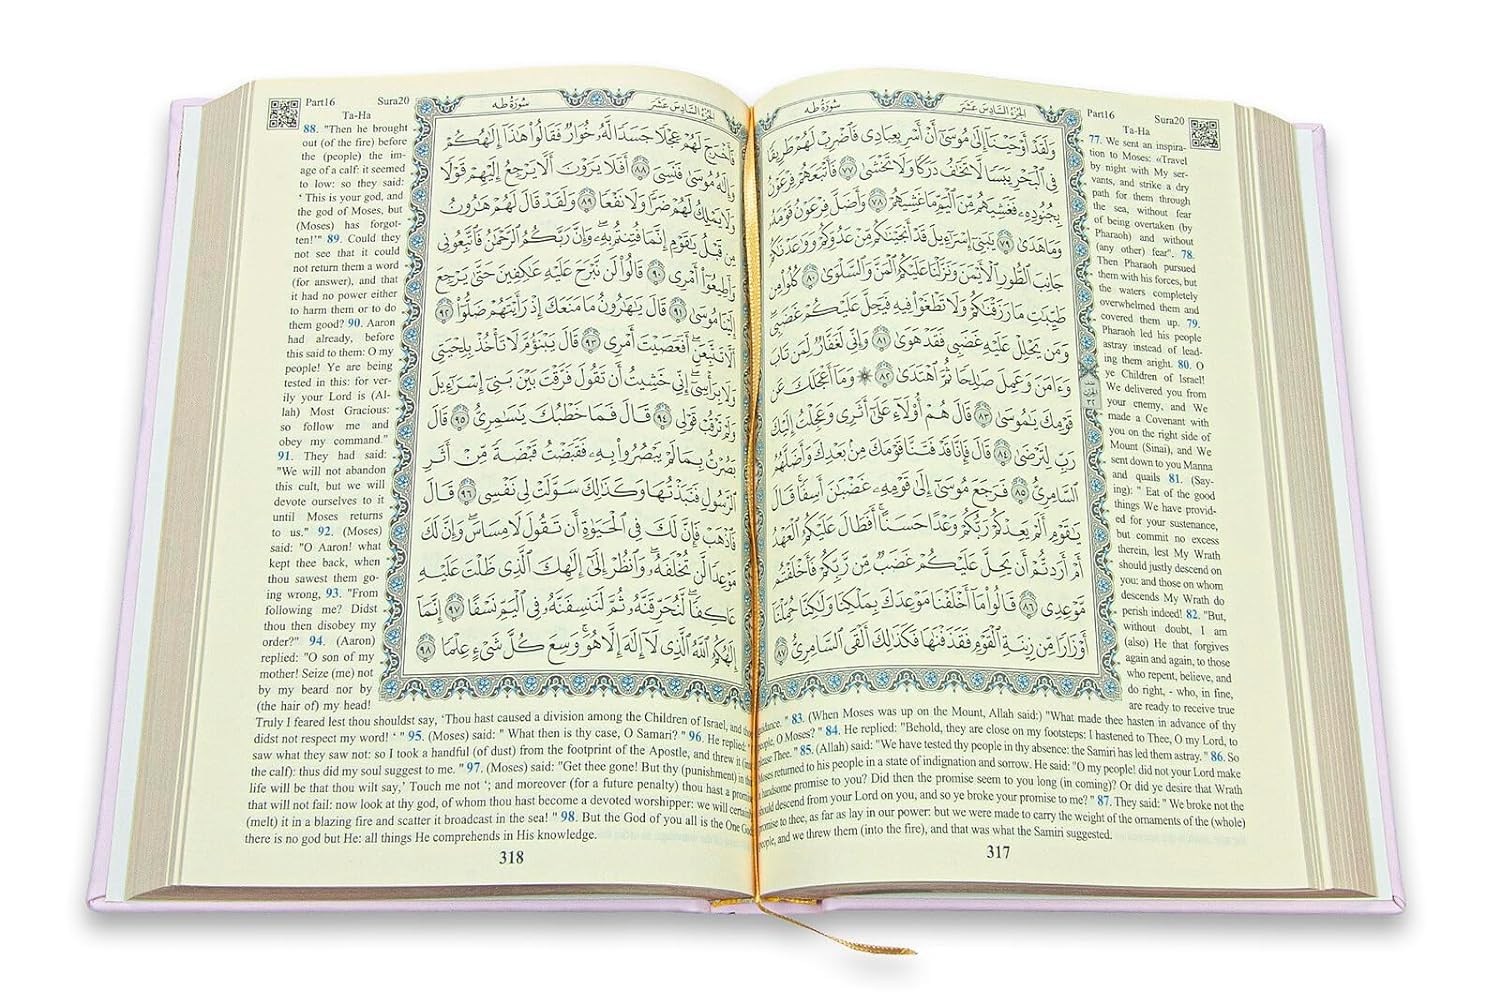 الجزء السادس عشر
سورة طه
وَلَقَدْ أَوْحَيْنَآ إِلَىٰ مُوسَىٰٓ أَنْ أَسْرِ بِعِبَادِى فَٱضْرِبْ لَهُمْ طَرِيقًا
فِى ٱلْبَحْرِ يَبَسًا لَّا تَخَٰفُ دَرَكًا وَلَا تَخْشَىٰ ٧٧ فَأَتْبَعَهُمْ فِرْعَوْنُ
بِجُنُودِهِۦ فَغَشِيَهُم مِّنَ ٱلْيَمِّ مَا غَشِيَهُمْ ٧٨ وَأَضَلَّ فِرْعَوْنُ قَوْمَهُۥ
وَمَا هَدَىٰ ٧٩ يَٰبَنِىٓ إِسْرَٰٓءِيلَ قَدْ أَنجَيْنَٰكُم مِّنْ عَدُوِّكُمْ وَوَٰعَدْنَٰكُمْ
جَانِبَ ٱلطُّورِ ٱلْأَيْمَنَ وَنَزَّلْنَا عَلَيْكُمُ ٱلْمَنَّ وَٱلسَّلْوَىٰ ٨٠ كُلُوا۟ مِن
طَيِّبَٰتِ مَا رَزَقْنَٰكُمْ وَلَا تَطْغَوْا۟ فِيهِ فَيَحِلَّ عَلَيْكُمْ غَضَبِى
وَمَن يَحْلِلْ عَلَيْهِ غَضَبِى فَقَدْ هَوَىٰ ٨١ وَإِنِّى لَغَفَّارٌ لِّمَن تَابَ
وَءَامَنَ وَعَمِلَ صَٰلِحًا ثُمَّ ٱهْتَدَىٰ ٨٢ ۞ وَمَآ أَعْجَلَكَ عَن
قَوْمِكَ يَٰمُوسَىٰ ٨٣ قَالَ هُمْ أُو۟لَآءِ عَلَىٰٓ أَثَرِى وَعَجِلْتُ إِلَيْكَ
رَبِّ لِتَرْضَىٰ ٨٤ قَالَ فَإِنَّا قَدْ فَتَنَّا قَوْمَكَ مِنۢ بَعْدِكَ وَأَضَلَّهُمُ
ٱلسَّامِرِىُّ ٨٥ فَرَجَعَ مُوسَىٰٓ إِلَىٰ قَوْمِهِۦ غَضْبَٰنَ أَسِفًا قَالَ
يَٰقَوْمِ أَلَمْ يَعِدْكُمْ رَبُّكُمْ وَعْدًا حَسَنًا أَفَطَالَ عَلَيْكُمُ ٱلْعَهْدُ
أَمْ أَرَدتُّمْ أَن يَحِلَّ عَلَيْكُمْ غَضَبٌ مِّن رَّبِّكُمْ فَأَخْلَفْتُم
مَّوْعِدِى ٨٦ قَالُوا۟ مَآ أَخْلَفْنَا مَوْعِدَكَ بِمَلْكِنَا وَلَٰكِنَّا حُمِّلْنَآ
أَوْزَارًا مِّن زِينَةِ ٱلْقَوْمِ فَقَذَفْنَٰهَا فَكَذَٰلِكَ أَلْقَى ٱلسَّامِرِىُّ ٨٧
Part16 Sura20
Ta-Ha
77. We sent an inspira-
tion to Moses: «Travel
by night with My ser-
vants, and strike a dry
path for them through
the sea, without fear
of being overtaken (by
Pharaoh) and without
(any other) fear". 78.
Then Pharaoh pursued
them with his forces, but
the waters completely
overwhelmed them and
covered them up. 79.
Pharaoh led his people
astray instead of lead-
ing them aright. 80. O
ye Children of Israel!
We delivered you from
your enemy, and We
made a Covenant with
you on the right side of
Mount (Sinai), and We
sent down to you Manna
and quails 81. (Say-
ing): " Eat of the good
things We have provid-
ed for your sustenance,
but commit no excess
therein, lest My Wrath
should justly descend on
you: and those on whom
descends My Wrath do
perish indeed! 82. "But,
without doubt, I am
(also) He that forgives
again and again, to those
who repent, believe, and
do right, - who, in fine,
are ready to receive true
guidance. " 83. (When Moses was up on the Mount, Allah said:) "What made thee hasten in advance of thy
people, O Moses? " 84. He replied: "Behold, they are close on my footsteps: I hastened to Thee, O my Lord, to
please Thee." 85. (Allah) said: "We have tested thy people in thy absence: the Samiri has led them astray." 86. So
Moses returned to his people in a state of indignation and sorrow. He said: "O my people! did not your Lord make
a handsome promise to you? Did then the promise seem to you long (in coming)? Or did ye desire that Wrath
should descend from your Lord on you, and so ye broke your promise to me? " 87. They said: " We broke not the
promise to thee, as far as lay in our power: but we were made to carry the weight of the ornaments of the (whole)
people, and we threw them (into the fire), and that was what the Samiri suggested.
317
الجزء السادس عشر
سورة طه
فَأَخْرَجَ لَهُمْ عِجْلًا جَسَدًا لَّهُۥ خُوَارٌ فَقَالُوا۟ هَٰذَآ إِلَٰهُكُمْ
وَإِلَٰهُ مُوسَىٰ فَنَسِىَ ٨٨ أَفَلَا يَرَوْنَ أَلَّا يَرْجِعُ إِلَيْهِمْ قَوْلًا
وَلَا يَمْلِكُ لَهُمْ ضَرًّا وَلَا نَفْعًا ٨٩ وَلَقَدْ قَالَ لَهُمْ هَٰرُونُ
مِن قَبْلُ يَٰقَوْمِ إِنَّمَا فُتِنتُم بِهِۦ وَإِنَّ رَبَّكُمُ ٱلرَّحْمَٰنُ فَٱتَّبِعُونِى
وَأَطِيعُوٓا۟ أَمْرِى ٩٠ قَالُوا۟ لَن نَّبْرَحَ عَلَيْهِ عَٰكِفِينَ حَتَّىٰ يَرْجِعَ
إِلَيْنَا مُوسَىٰ ٩١ قَالَ يَٰهَٰرُونُ مَا مَنَعَكَ إِذْ رَأَيْتَهُمْ ضَلُّوٓا۟ ٩٢
أَلَّا تَتَّبِعَنِ أَفَعَصَيْتَ أَمْرِى ٩٣ قَالَ يَبْنَؤُمَّ لَا تَأْخُذْ بِلِحْيَتِى
وَلَا بِرَأْسِىٓ إِنِّى خَشِيتُ أَن تَقُولَ فَرَّقْتَ بَيْنَ بَنِىٓ إِسْرَٰٓءِيلَ
وَلَمْ تَرْقُبْ قَوْلِى ٩٤ قَالَ فَمَا خَطْبُكَ يَٰسَٰمِرِىُّ ٩٥ قَالَ
بَصُرْتُ بِمَا لَمْ يَبْصُرُوا۟ بِهِۦ فَقَبَضْتُ قَبْضَةً مِّنْ أَثَرِ
ٱلرَّسُولِ فَنَبَذْتُهَا وَكَذَٰلِكَ سَوَّلَتْ لِى نَفْسِى ٩٦ قَالَ
فَٱذْهَبْ فَإِنَّ لَكَ فِى ٱلْحَيَوٰةِ أَن تَقُولَ لَا مِسَاسَ وَإِنَّ لَكَ
مَوْعِدًا لَّن تُخْلَفَهُۥ وَٱنظُرْ إِلَىٰٓ إِلَٰهِكَ ٱلَّذِى ظَلْتَ عَلَيْهِ
عَاكِفًا لَّنُحَرِّقَنَّهُۥ ثُمَّ لَنَنسِفَنَّهُۥ فِى ٱلْيَمِّ نَسْفًا ٩٧ إِنَّمَآ
إِلَٰهُكُمُ ٱللَّهُ ٱلَّذِى لَآ إِلَٰهَ إِلَّا هُوَ وَسِعَ كُلَّ شَىْءٍ عِلْمًا ٩٨
Part16 Sura20
Ta-Ha
88. "Then he brought
out (of the fire) before
the (people) the im-
age of a calf: it seemed
to low: so they said:
‘ This is your god, and
the god of Moses, but
(Moses) has forgot-
ten!’" 89. Could they
not see that it could
not return them a word
(for answer), and that
it had no power either
to harm them or to do
them good? 90. Aaron
had already, before
this said to them: O my
people! Ye are being
tested in this: for ver-
ily your Lord is (Al-
lah) Most Gracious:
so follow me and
obey my command."
91. They had said:
"We will not abandon
this cult, but we will
devote ourselves to it
until Moses returns
to us." 92. (Moses)
said: "O Aaron! what
kept thee back, when
thou sawest them go-
ing wrong, 93. "From
following me? Didst
thou then disobey my
order?" 94. (Aaron)
replied: "O son of my
mother! Seize (me) not
by my beard nor by
(the hair of) my head!
Truly I feared lest thou shouldst say, ‘Thou hast caused a division among the Children of Israel, and
didst not respect my word! ‘ " 95. (Moses) said: " What then is thy case, O Samari? " 96. He replied:
saw what they saw not: so I took a handful (of dust) from the footprint of the Apostle, and threw it
the calf): thus did my soul suggest to me. " 97. (Moses) said: "Get thee gone! But thy (punishment) in
life will be that thou wilt say,’ Touch me not ‘; and moreover (for a future penalty) thou hast a promise
that will not fail: now look at thy god, of whom thou hast become a devoted worshipper: we will
(melt) it in a blazing fire and scatter it broadcast in the sea! " 98. But the God of you all is the One
there is no god but He: all things He comprehends in His knowledge.
318